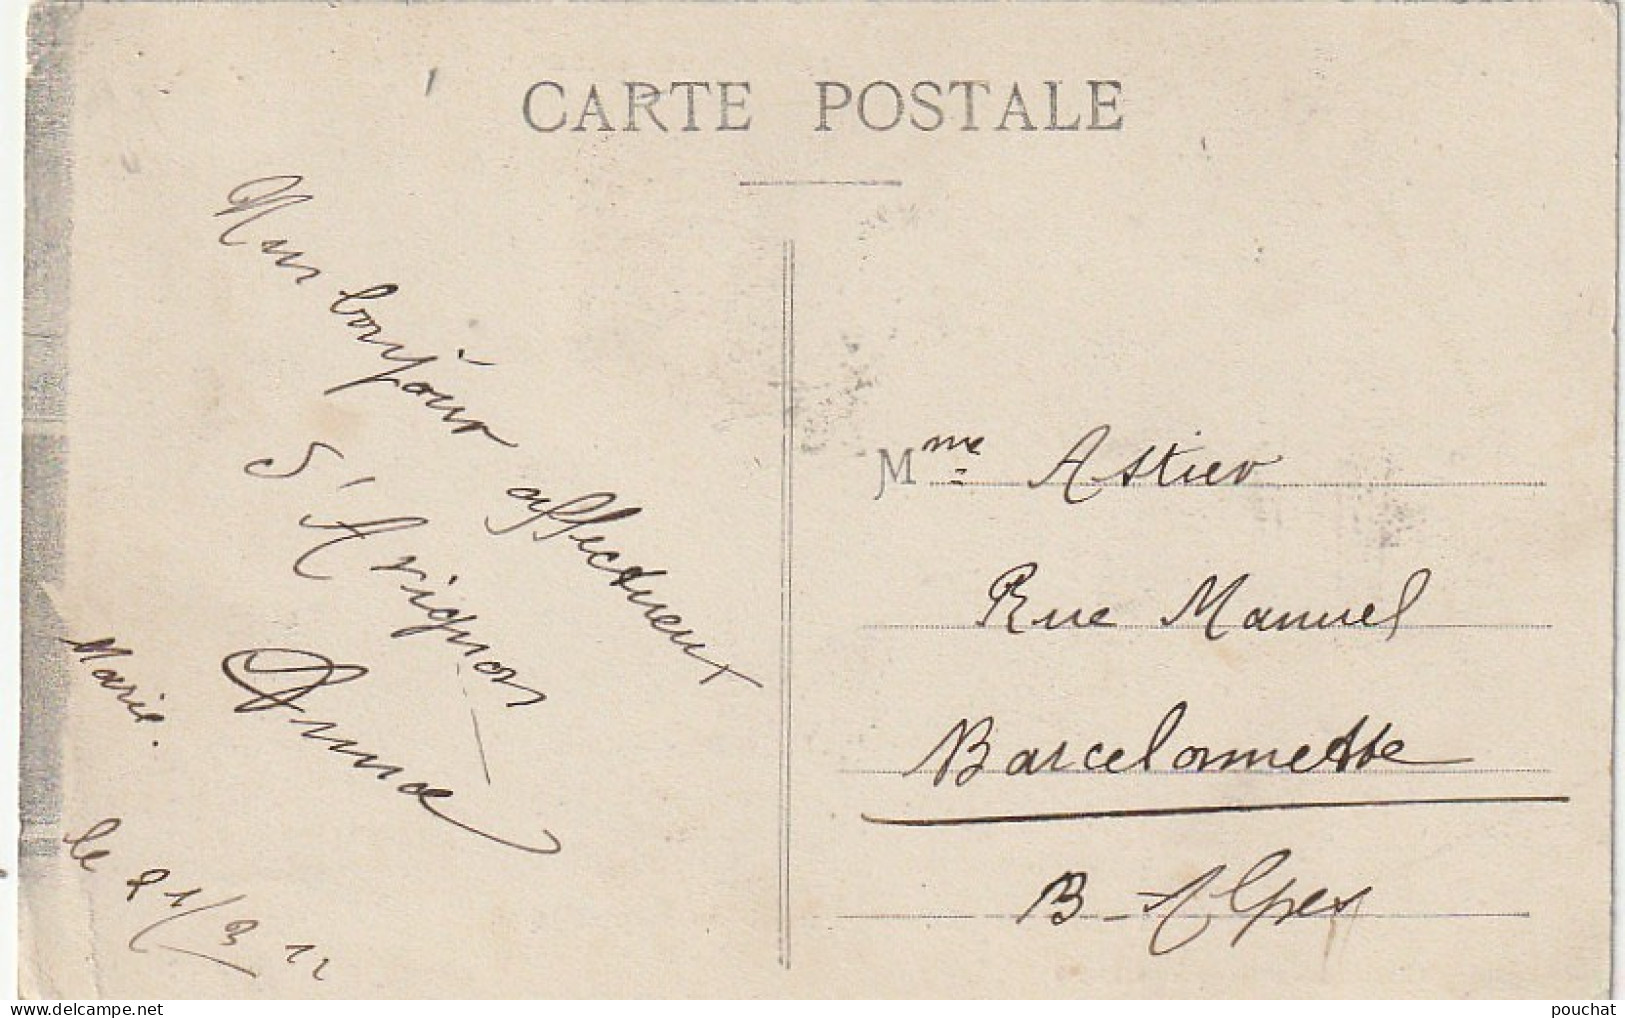 CARTE POSTALE
Mon bonjour affectueux
d'Avignon
Marie.
le 21/3 12
Mme Astier
Rue Manuel
Barcelonnette
B-Alpes
delcampe.net
pouchat